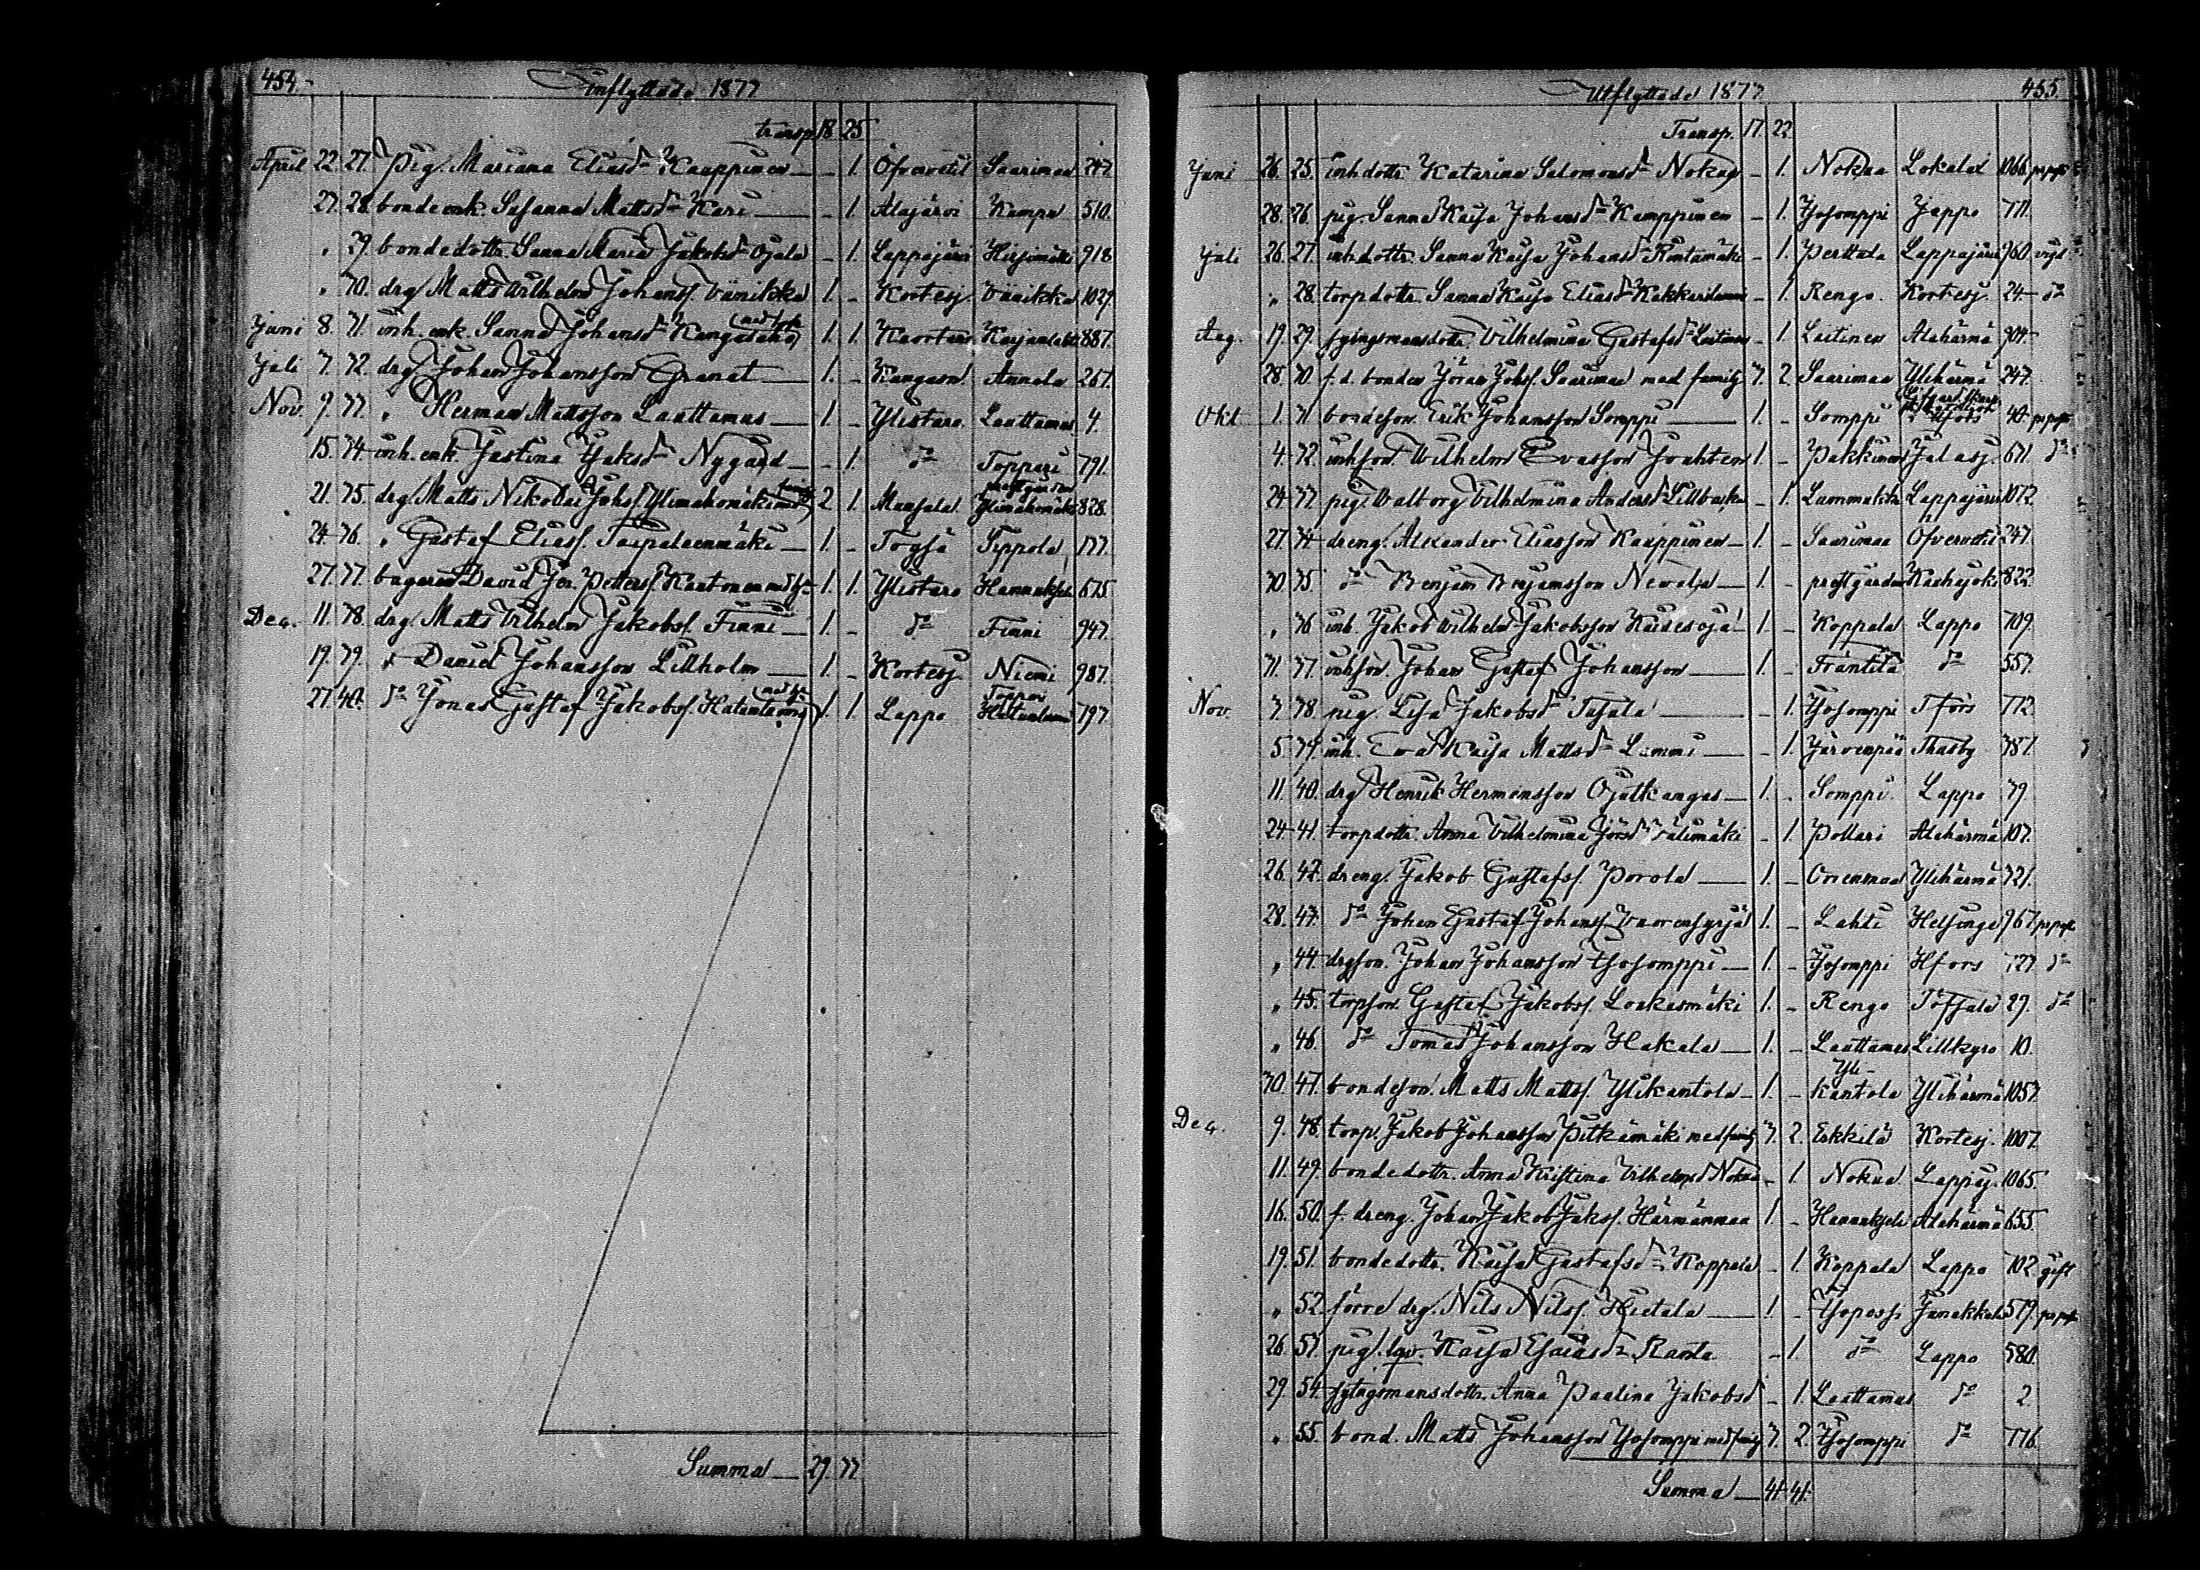 454. Inflyttade 1877
transp. 18 25
April 22. 27. Pig. Mariana Eliasd:r Kauppinen — - 1. Öfvervetil Saarimaa 247.
27. 28. bondeenk. Susanna Mattsd:r Kari — - 1. Alajärvi Kampa 510.
" 29. bondedottr. Sanna Maria Jakobsd:r Ojala - 1. Lappajärvi Hirsimäki 918
" 30. drg Matts Wilhelm Johanss. Vänikkä 1. - Kortesj. Vänikkä 1029.
Juni 8. 31. inh. enk. Sanna Johansd:r Kangasaho 1. 1. Kuortane 887.
Juli 7. 32. drg Johan Johansson Granat — 1. - Kangasn. Annala 267.
Nov. 9. 33. " Herman Mattsson Laattamus — 1. - Ylistaro. Laattamus 4.
15. 34. inh. enk. Justina Jaksd:r Nygård — - 1. d:o Topperi 791.
21. 35. drg Matts Nikolai Johss. Ylimahomäki med familj 2 1. Maxsala. Ylimahomäki 828.
24. 36. " Gustaf Eliass. Taipaleenmäki — 1. - Toysä Seppola 177.
27. 37. bageren David Jer. Petterss. Kaatonen med h:u 1. 1. Ylistaro Hannuksela 675
Dec. 11. 38. drg Matts Vilhelm Jakobss. Finni — 1. - d:o Finni 947.
19. 39. " Daniel Johansson Lillholm — 1. - Kortesj. Niemi 987.
27. 40. d:o Jonas Gustaf Jakobss. 1. 1. Lappo Topperi 797.
Summa — 29. 33
Utflyttade 1877 455
Transp. 17. 22
Juni 26. 25. inhdottr. Katarina Salomonsd:r Nokua - 1. Nokua Lokalax 1066.
28. 26. pig. Sanna Kaisa Johansd:r Kamppinen - 1. Yosomppi Jeppo 711.
Juli 26. 27. inhdottr. Sanna Kajsa Johansd:r Rintamäki - 1. Perttula Lappajärvi 760. vigd
" 28. torpdottr. Sanna Kajsa Eliasd:r - 1. Rengo. Kortesj. 24. d:o
Aug. 19. 29. sytingsmansdottr. Vilhelmina Gustafsd:r Laitinen - 1. Laitinen Alahärmä 904.
28. 30. f. d. bonden Jöran Johss. Saarimaa med familj 3. 2. Saarimaa Ylihärmä 247.
Okt. 1. 31 bondeson. Erik Johansson Somppi — 1. - Somppi 40.
4. 32. inhson. Wilhelm Evasson Joahten 1. - Pukkinen Jalasj. 671. d:o
24. 33 pig. Walborg Vilhelmina Andersd:r Lillbacka - 1. Lummukka Lappajärvi 1072.
27. 34. dreng. Alexander Eliasson Kauppinen — 1. - Saarimaa Öfvervetil 247.
30. 35. d:o Benjam. Benjamsson Newala — 1. - prestgården Kauhajoki 822.
" 36. inh. Jakob Wilhelm Jakobsson Kaidesoja 1. - Koppala Lappo 709.
31. 37. inhson. Johan Gustaf Johansson — 1. - Frantilä d:o 557.
Nov. 3. 38. pig. Lisa Jakobsd:r Tasala — - 1. Yosomppi Tfors 772.
5. 39. inh. Eva Kaisa Mattsd:r Lammi — - 1. Järvenpää Thusby 787.
11. 40. drg Henrik Hermansson Ojutkangas — 1. - Somppi. Lappo 79.
24. 41. torpdottr. Anna Vilhelmina Jörsd:r Välimäki - 1. Pollari Alahärmä 107.
26. 42. dreng. Jakob Gustafss. Porola — 1. - Orrenmaa Ylihärmä 721.
28. 43. d:o Johan Gustaf Johanss. Vuorensyrjä 1. - Lahti Helsinge 967.
" 44. drgson. Johan Johansson Yosomppi — 1. - Yosomppi Hfors 727. d:o
" 45. torpson. Gustaf Jakobss. Loukasmäki 1. - Rengo Toffsala 29. d:o
" 46. d:o Tomas Johansson Hakala — 1. - Laattamus Lillkyro 10.
30. 47. bondeson. Matts Mattss. Ylikantola — 1. - Yli-kantola Ylihärmä 1057.
Dec. 9. 48. torp. Jakob Johansson Pitkämäki med familj 3. 2. Erkkilä Kortesj. 1007.
11. 49. bondedottr. Anna Kristina Vilhelmsd:r Nokua - 1. Nokua Lappaj. 1065.
16. 50. f. dreng. Johan Jakob Jakss. Härmänmaa 1. - Hannuksela Alahärmä 655.
19. 51. bondedottr. Kaisa Gustafsd:r Koppala - 1. Koppala Lappo 102. gift
" 52 förre drg. Nils Nilss. Hietala — 1. - Janakkala 579.
26. 53. pig. Kaisa Esaiasd:r Ranta - 1. d:o Lappo 580.
29. 54. sytngsmansdottr. Anna Paulina Jakobsd:r - 1. Laattamus d:o 2.
" 55. bond. Matts Johansson Yosomppi med familj 3. 2. Yosomppi d:o 776.
Summa — 41. 41.